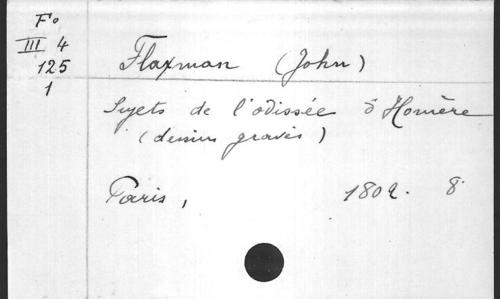 Fo
III 4
125
1
Flaxman (John)
Sujets de l'odissée d'Homère
(dessins gravés)
Paris, 1802. 8.